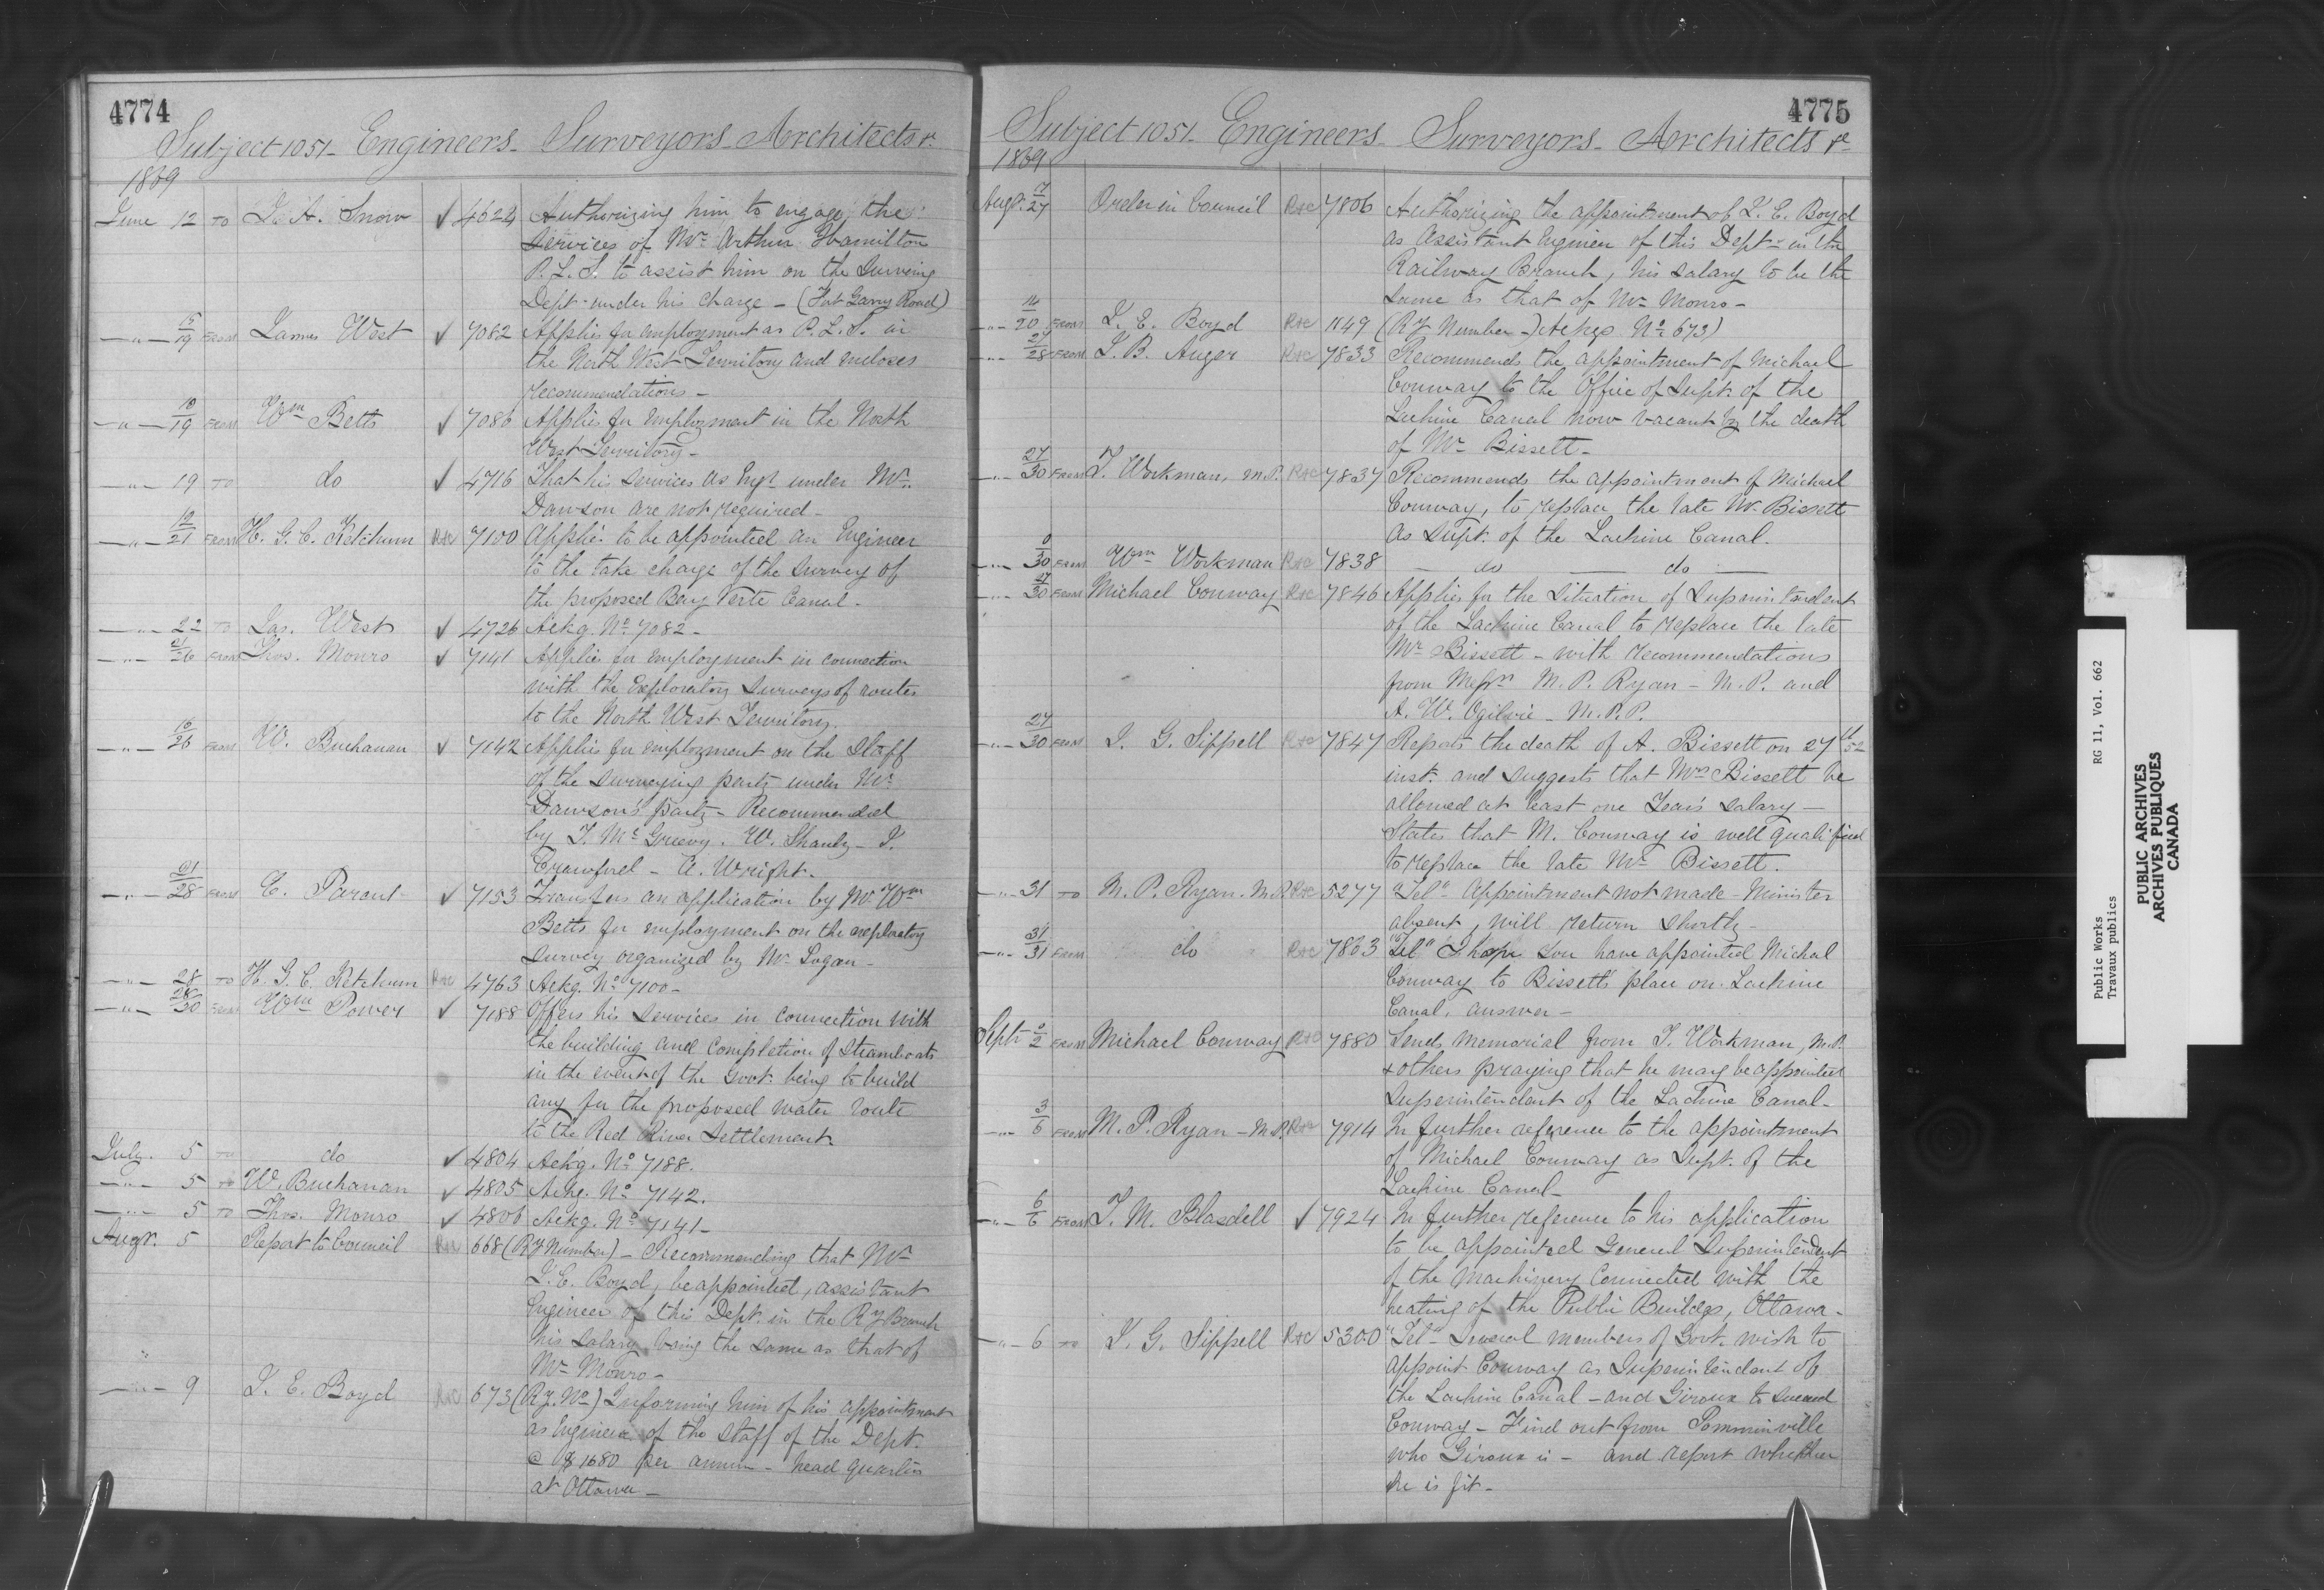 4774
Subject 1051 - Engineers - Surveyors - Architects &c
1869
June 12 TO J. A. Snow ✓ 4622 Authorizing him to engage the
services of Mr. Arthur Hamilton
P. L. S. to assist him on the Surveing
Dept. under his charge - (Fort Garry Road)
-"- 15/19 FROM James West ✓ 7082 Applies for employment as P. L. S. in
the North West Territory and incloses
recommendations -
-"- 10/19 FROM Wm Betts ✓ 7086 Applies for employment in the North
West Territory -
-"- 19 TO do ✓ 4716 That his services as Engr. under Mr.
Dawson are not required -
-"- 12/21 FROM H. G. C. Ketchum R&C 7100 Applies to be appointed an Engineer
to the take charge of the survey of
the proposed Bay Verte Canal -
-"- 22 TO Jas. West ✓ 4726 Ackg. No. 7082 -
-"- 21/26 FROM Thos. Monro ✓ 7141 Applies for employment in connection
with the Exploratory surveys of routes
to the North West Territory.
-"- 16/26 FROM W. Buchanan ✓ 7142 Applies for employment on the Staff
of the surveying party under Mr.
Dawson's party - Recommended
by T. McGreevy. W. Shanly - J.
Crawford - A. Wright -
-"- 21/28 FROM E. Parent ✓ 7153 Transfers an application by Mr. Wm
Betts for employment on the exploratory
survey organized by Mr. Logan -
-"- 28 TO H. G. C. Ketchum R&C 4763 Ackg. No. 7100 -
-"- 28/30 FROM Wm Power ✓ 7188 Offers his services in connection with
the building and completion of Steamboats
in the event of the Govt. being to build
any for the proposed water route
to the Red River Settlement.
July. 5 TO do ✓ 4804 Ackg. No. 7188.
-"- 5 TO W. Buchanan ✓ 4805 Ackg. No. 7142.
-"- 5 TO Thos. Monro ✓ 4806 Ackg. No. 7141 -
Augt. 5 Report to Council R&C 668 (Ry Number) - Recommending that Mr.
J. E. Boyd, be appointed, assistant
Engineer of this Dept. in the Ry Branch
his salary being the same as that of
Mr. Monro -
-"- 9 J. E. Boyd R&C 673 (Ry. No.) Informing him of his appointment
as Engineer of the Staff of the Dept.
@ $1680 per annum - head quarters
at Ottawa -
4775
Subject 1051 - Engineers - Surveyors - Architects &c
1869
Augt. 17/27 Order in Council R&C 7806 Authorizing the appointment of J. E. Boyd
as Assistant Engineer of this Dept. in the
Railway Branch, his salary to be the
same as that of Mr. Monro -
-"- 14/20 FROM J. E. Boyd R&C 1149 (Ry Number -) Ackgs No. 673)
-"- 27/28 FROM J. B. Auger R&C 7833 Recommends the appointment of Michael
Conway to the Office of Supt. of the
Lachine Canal now vacant by the death
of Mr. Bissett -
-"- 27/30 FROM T. Workman, M.P. R&C 7837 Recommends the appointment of Michael
Conway, to replace the late Mr. Bissett
as Supt. of the Lachine Canal.
-"- 0/30 FROM Wm Workman R&C 7838 - do - do -
-"- 27/30 FROM Michael Conway R&C 7846 Applies for the Situation of Superintendent
of the Lachine Canal to replace the late
Mr. Bissett - with recommendations
from Messrs M. P. Ryan - M. P. and
A. W. Ogilvie - M. P. P.
-"- 27/30 FROM J. G. Sippell R&C 7847 Reports the death of A. Bissett on 27th
inst. and suggests that Mrs Bissett be
allowed at least one Year's salary -
States that M. Conway is well qualified
to replace the late Mr. Bissett.
-"- 31 TO M. P. Ryan. M.P. R&C 5277 "Tel" Appointment not made - Minister
absent, will return shortly -
-"- 31/31 FROM do R&C 7863 "Tel" I hope you have appointed Michael
Conway to Bissett's place on Lachine
Canal, answer -
Septr 0/2 FROM Michael Conway R&C 7880 Sends memorial from T. Workman, M.P.
& others praying that he may be appointed
Superintendent of the Lachine Canal -
-"- 3/6 FROM M. P. Ryan - M.P. R&C 7914 In further reference to the appointment
of Michael Conway as Supt. of the
Lachine Canal -
-"- 6/6 FROM T. M. Blasdell ✓ 7924 In further reference to his application
to be appointed General Superintendent
of the Machinery connected with the
heating of the Public Buildgs, Ottawa -
-"- 6 TO J. G. Sippell R&C 5300 "Tel" Several members of Govt. wish to
appoint Conway as Superintendent of
the Lachine Canal - and Giroux to succeed
Conway - Find out from Pomminville
who Giroux is - and report whether
he is fit -
Public Works RG 11, Vol. 662
Travaux publics
PUBLIC ARCHIVES
ARCHIVES PUBLIQUES
CANADA